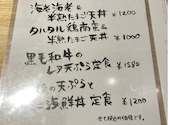 海老海老&
半熟たまご天丼 ¥1200
タルタル鶏南蛮&
半熟たまご天丼 ¥1000
黒毛和牛の
レア天ぷら定食 ¥1580
の天ぷらと
海鮮丼 定食 ¥1200